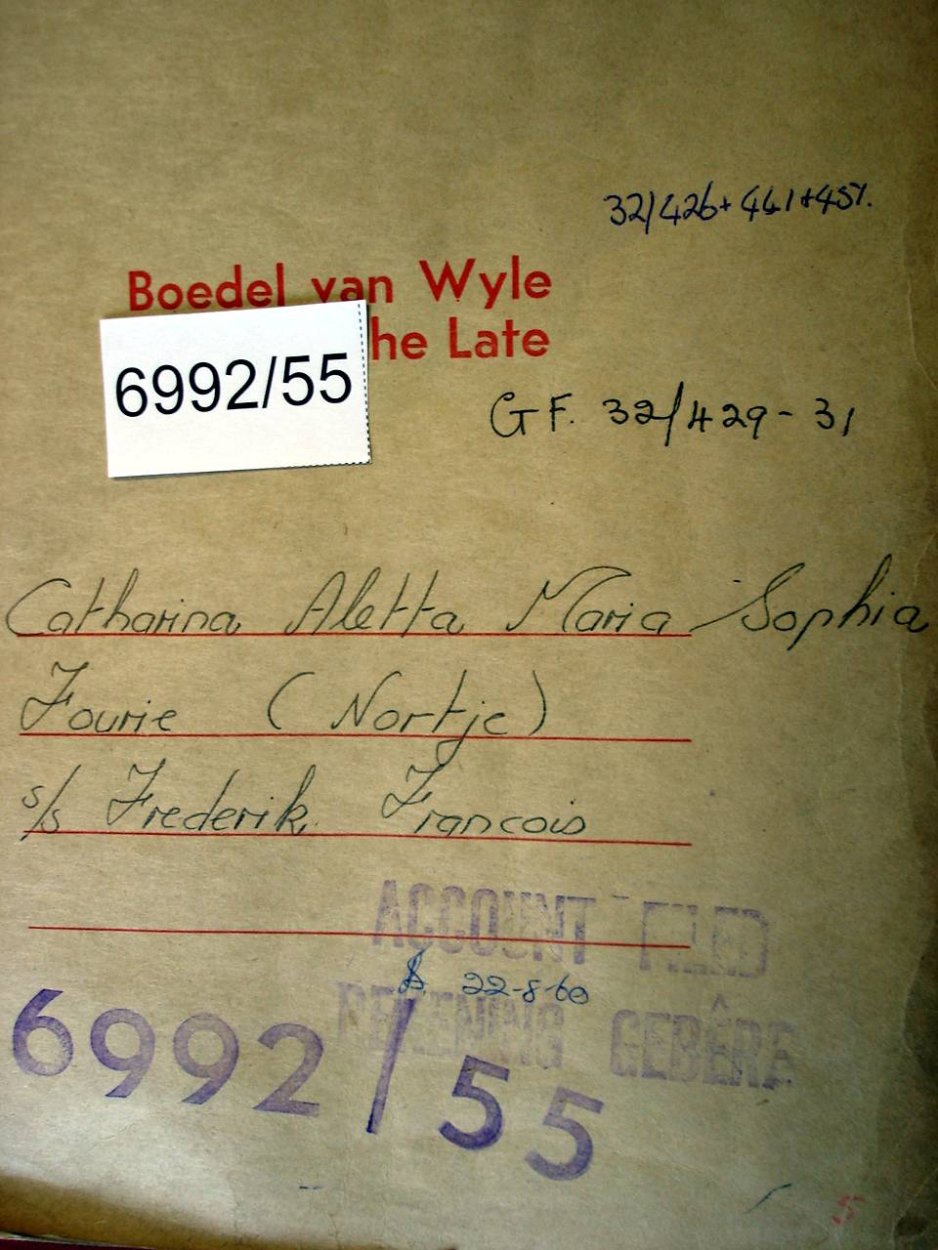 32/426+441+451.
Boedel van Wyle
he Late
6992/55
G F. 32/429-31
Catharina Aletta Maria Sophia
Fourie (Nortje)
s/s Frederik Francois
ACCOUNT FILED
22-8-60
REKENING GEBÊRE
6992/55
5